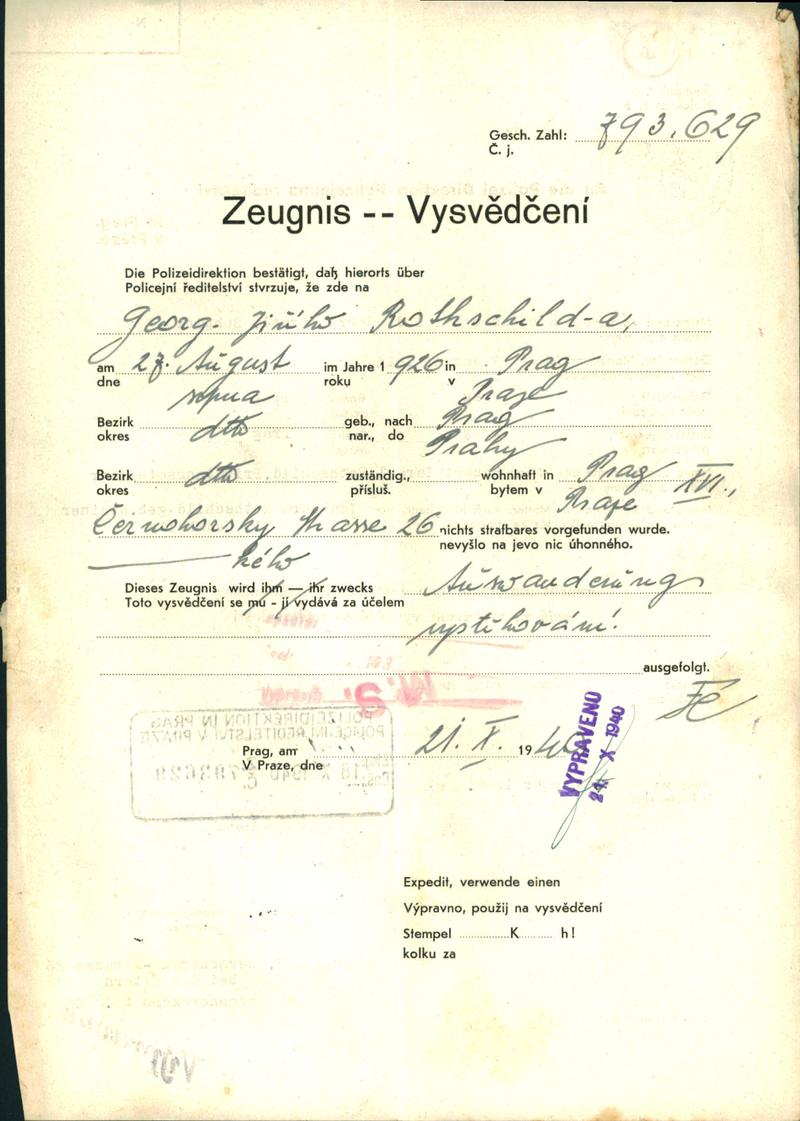 Gesch. Zahl: 793.629
Č. j.
Zeugnis -- Vysvědčení
Die Polizeidirektion bestätigt, daß hierorts über
Policejní ředitelství stvrzuje, že zde na
Georg. Jiřího Rothschild-a,
am 27. August im Jahre 1 926 in Prag
dne srpna roku v Praze
Bezirk dtto geb., nach Prag
okres nar., do Prahy
Bezirk dtto zuständig., wohnhaft in Prag XVI.,
okres přísluš. bytem v Praze
Černohorsky Strasse 26 nichts strafbares vorgefunden wurde.
kého nevyšlo na jevo nic úhonného.
Dieses Zeugnis wird ihm — ihr zwecks Auswanderung
Toto vysvědčení se mu - jí vydává za účelem
vystěhování.
ausgefolgt.
POLIZEIDIREKTION IN PRAG
POLICEJNÍ ŘEDITELSTVÍ V PRAZE
Prag, am 21. X. 1940
V Praze, dne
VYPRAVENO
24. X 1940
Expedit, verwende einen
Výpravno, použij na vysvědčení
Stempel K h!
kolku za